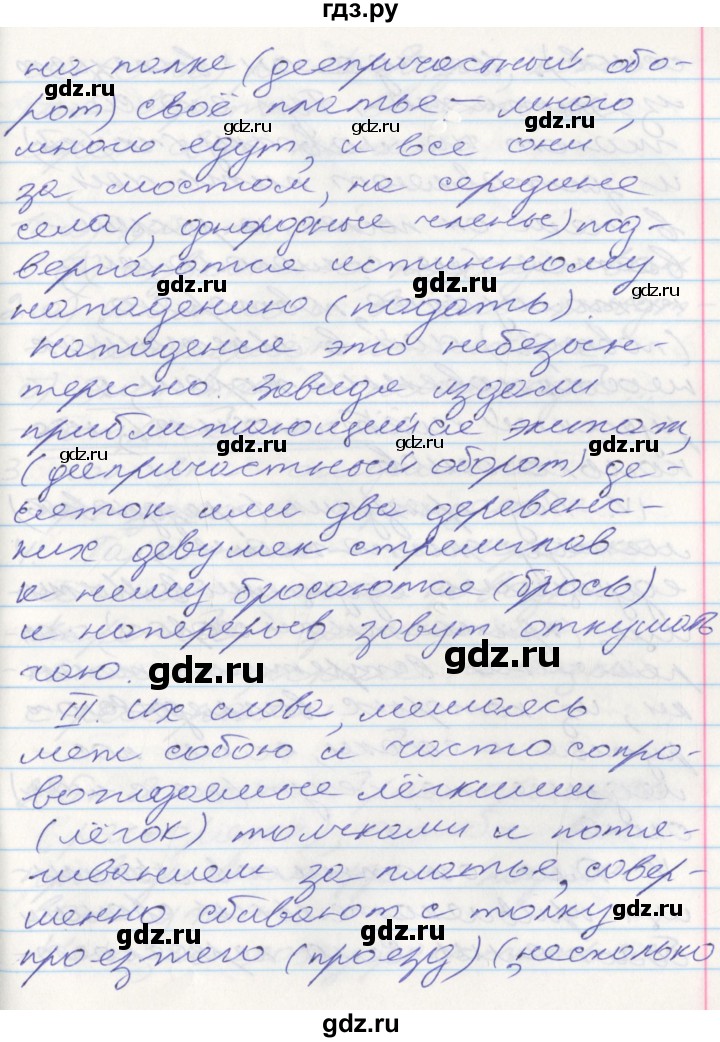 гдз.ру
на палке (деепричастный обо-
рот) своё платье – много,
много едут, и все они
за мостом, на середине
села (, однородные члены) под-
вергаются истинному
нападению (падать).
Нападение это небезын-
тересно. Завидя издали
приближающийся экипаж,
(деепричастный оборот) де-
сяток или два деревенс-
ких девушек стремглав
к нему бросаются (брось)
и наперерыв зовут откушать
чаю.
III. Их слова, мешаясь
меж собою и часто сопро-
вождаемые лёгкими
(лёгок) толчками и потя-
гиванием за платье, совер-
шенно сбивают с толку
проезжего (проезд) (, несколько
gdz.ru